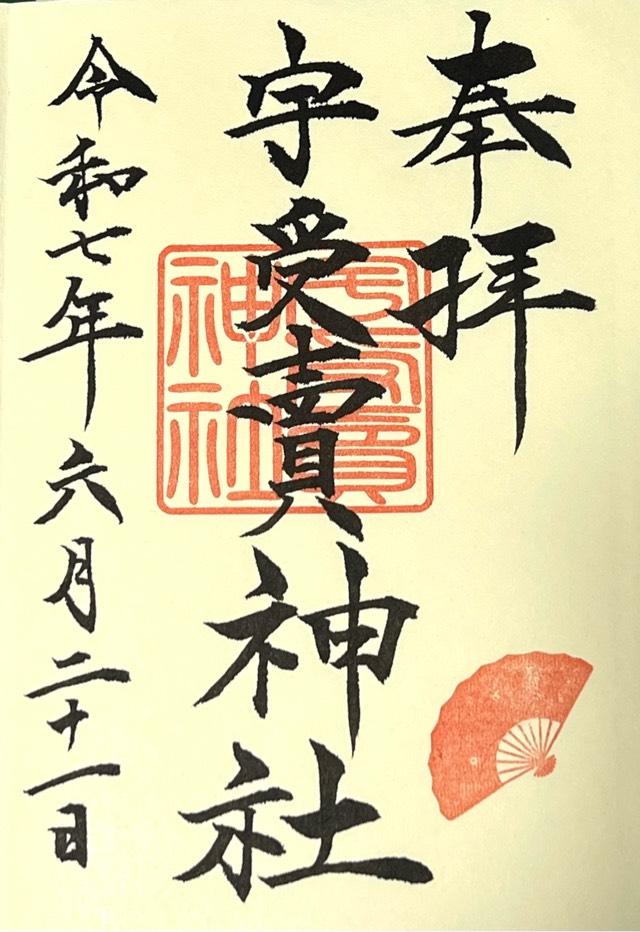 奉拝
宇受賣神社
宇受賣神社
令和七年六月二十一日